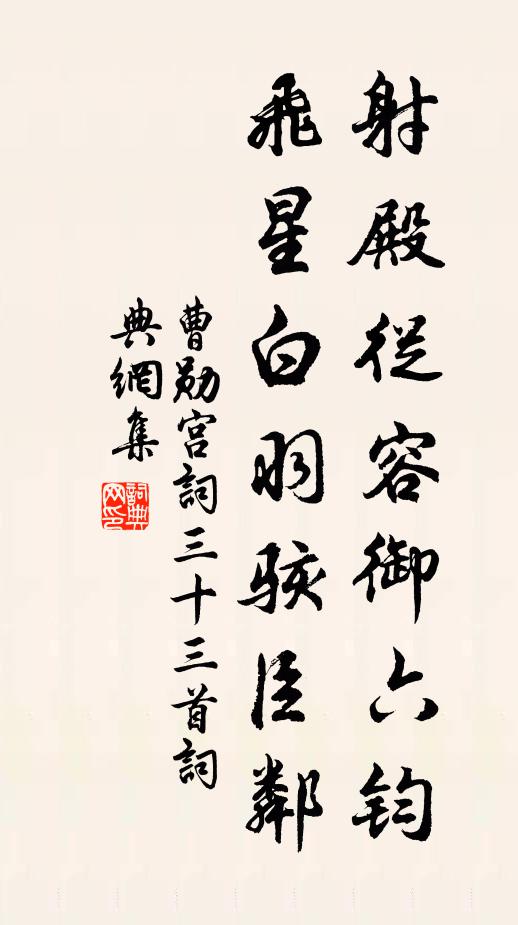 射殿從容御六鈞
飛星白羽駭臣鄰
曹勛宮詞三十三首詞
典網集
詞典
网印